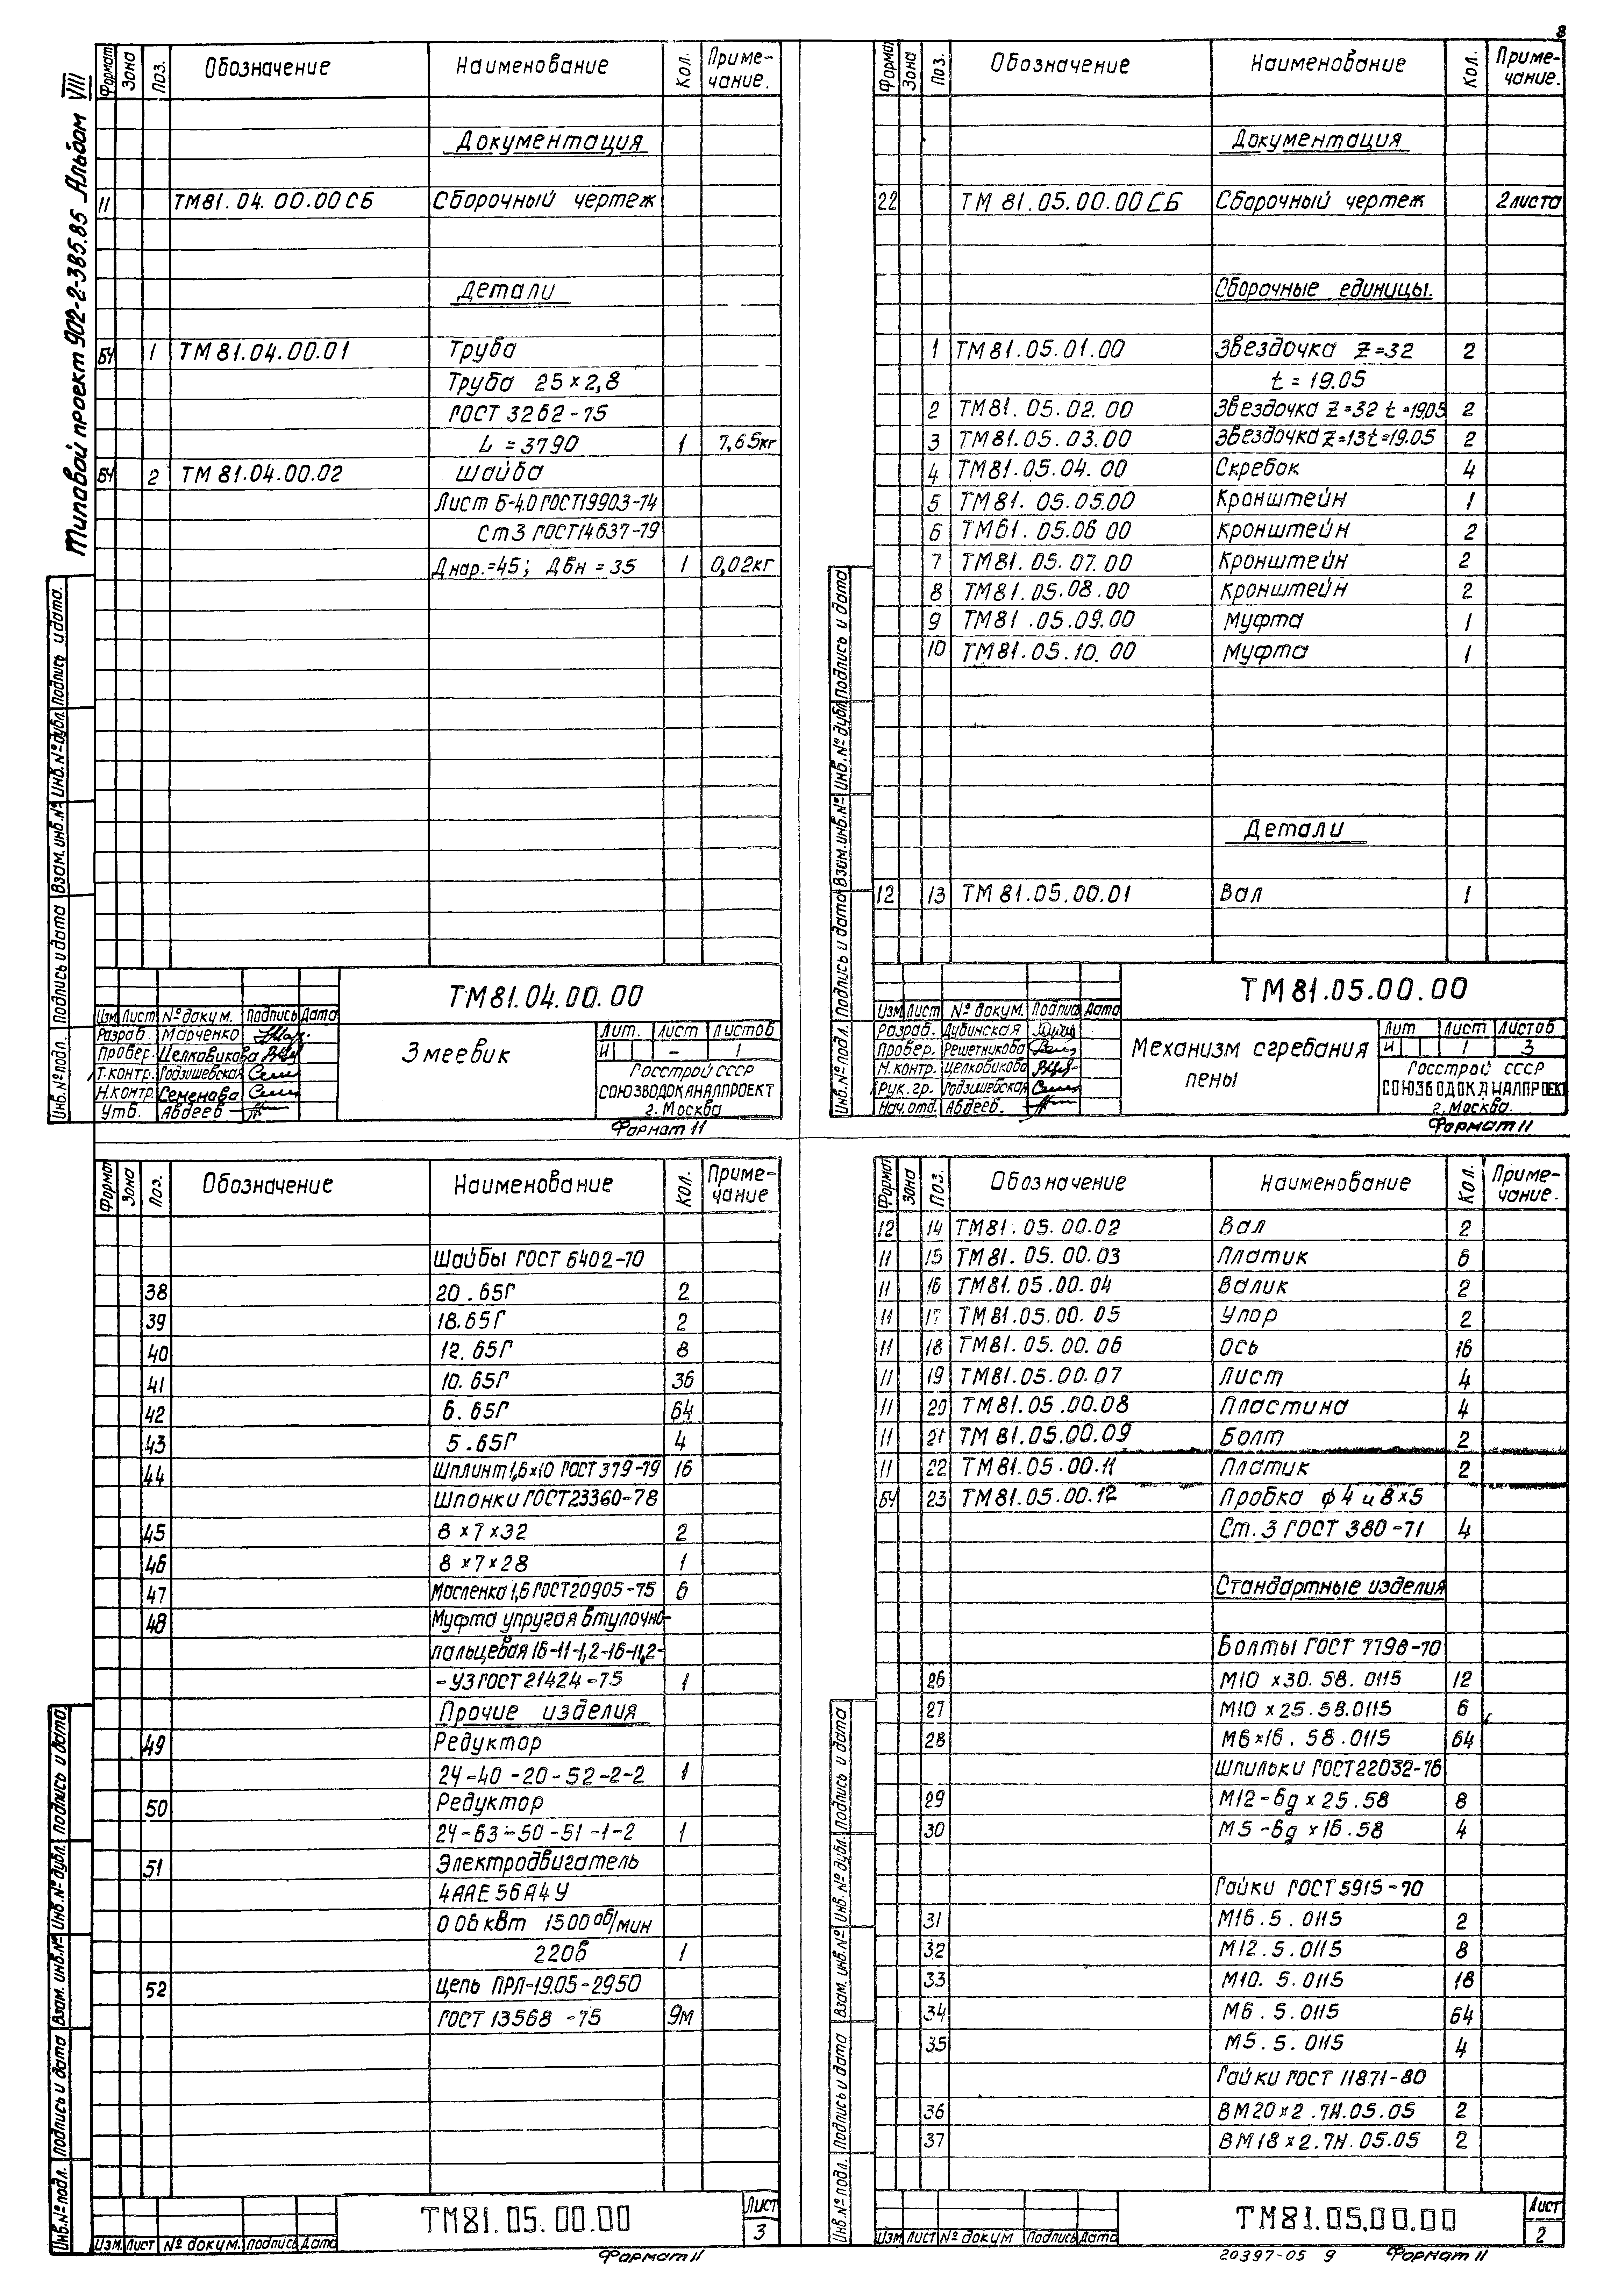 8
Типовой проект 902-2-385.85 Альбом VIII
Формат Зона Поз. Обозначение Наименование Кол. Приме-
чание.
Документация
11 ТМ81.04.00.00СБ Сборочный чертеж
Детали
БЧ 1 ТМ81.04.00.01 Труба
Труба 25×2,8
ГОСТ 3262-75
L = 3790 1 7,65кг
БЧ 2 ТМ81.04.00.02 Шайба
Лист Б-4,0 ГОСТ19903-74
Ст3 ГОСТ14637-79
Днар.=45; Дбн = 35 1 0,02кг
ТМ81.04.00.00
Изм Лист № докум. Подпись Дата
Разраб. Марченко
Провер. Целковикова
Т.контр. Годзишевская
Н.контр. Семенова
Утв. Авдеев
Змеевик
Лит. Лист Листов
И - 1
Госстрой СССР
СОЮЗВОДОКАНАЛПРОЕКТ
г. Москва
Формат 11
Инв.№ подл. Подпись и дата Взам.инв.№ Инв.№ дубл. Подпись и дата.
Формат Зона Поз. Обозначение Наименование Кол. Приме-
чание.
Документация
22 ТМ 81.05.00.00 СБ Сборочный чертеж 2листа
Сборочные единицы.
1 ТМ81.05.01.00 Звездочка Z=32 2
t = 19.05
2 ТМ81.05.02.00 Звездочка Z=32 t=19.05 2
3 ТМ81.05.03.00 Звездочка Z=13 t=19.05 2
4 ТМ81.05.04.00 Скребок 4
5 ТМ81.05.05.00 Кронштейн 1
6 ТМ61.05.06 00 Кронштейн 2
7 ТМ81.05.07.00 Кронштейн 2
8 ТМ81.05.08.00 Кронштейн 2
9 ТМ81.05.09.00 Муфта 1
10 ТМ81.05.10.00 Муфта 1
Детали
12 13 ТМ 81.05.00.01 Вал 1
ТМ81.05.00.00
Изм Лист № докум. Подпись Дата
Разраб. Дубинская
Провер. Решетникова
Н.контр. Целковикова
Рук. гр. Годзишевская
Нач.отд. Авдеев.
Механизм сгребания
пены
Лит Лист Листов
И 1 3
Госстрой СССР
СОЮЗВОДОКАНАЛПРОЕКТ
г. Москва.
Формат 11
Инв.№ подл. Подпись и дата Взам.инв.№ Инв.№ дубл. Подпись и дата
Формат Зона Поз. Обозначение Наименование Кол. Приме-
чание
Шайбы ГОСТ 6402-70
38 20.65Г 2
39 18.65Г 2
40 12.65Г 8
41 10.65Г 36
42 6.65Г 64
43 5.65Г 4
44 Шплинт 1,6×10 ГОСТ 379-79 16
Шпонки ГОСТ23360-78
45 8×7×32 2
46 8×7×28 1
47 Масленка 1,6 ГОСТ20905-75 6
48 Муфта упругая втулочно-
пальцевая 16-11-1,2-16-11,2-
-У3 ГОСТ 21424-75 1
Прочие изделия
49 Редуктор
2Ч-40-20-52-2-2 1
50 Редуктор
2Ч-63-50-51-1-2 1
51 Электродвигатель
4ААЕ56А4У
0 06 кВт 1500 об/мин
220в 1
52 Цепь ПРЛ-19.05-2950
ГОСТ 13568-75 9м
ТМ81.05.00.00
Лист
3
Изм. Лист № докум. Подпись Дата
Формат 11
Инв.№ подл. Подпись и дата Взам. инв.№ Инв.№ дубл. Подпись и дата
Формат Зона Поз. Обозначение Наименование Кол. Приме-
чание.
12 14 ТМ81.05.00.02 Вал 2
11 15 ТМ81.05.00.03 Платик 6
11 16 ТМ81.05.00.04 Валик 2
11 17 ТМ81.05.00.05 Упор 2
11 18 ТМ81.05.00.06 Ось 16
11 19 ТМ81.05.00.07 Лист 4
11 20 ТМ81.05.00.08 Пластина 4
11 21 ТМ81.05.00.09 Болт 2
11 22 ТМ81.05.00.11 Платик 2
БЧ 23 ТМ81.05.00.12 Пробка ф 4 и 8×5
Ст. 3 ГОСТ 380-71 4
Стандартные изделия
Болты ГОСТ 7796-70
26 М10×30.58.0115 12
27 М10×25.58.0115 6
28 М6×16.58.0115 64
Шпильки ГОСТ22032-76
29 М12-6g×25.58 8
30 М5-6g×16.58 4
Гайки ГОСТ 5915-70
31 М16.5.0115 2
32 М12.5.0115 8
33 М10.5.0115 18
34 М6.5.0115 64
35 М5.5.0115 4
Гайки ГОСТ 11871-80
36 ВМ20×2.7Н.05.05 2
37 ВМ18×2.7Н.05.05 2
ТМ81.05.00.00
Лист
2
Изм Лист № докум Подпись Дата
20397-05 9 Формат 11
Инв.№ подл. Подпись и дата Взам. инв.№ Инв.№ дубл. Подпись и дата